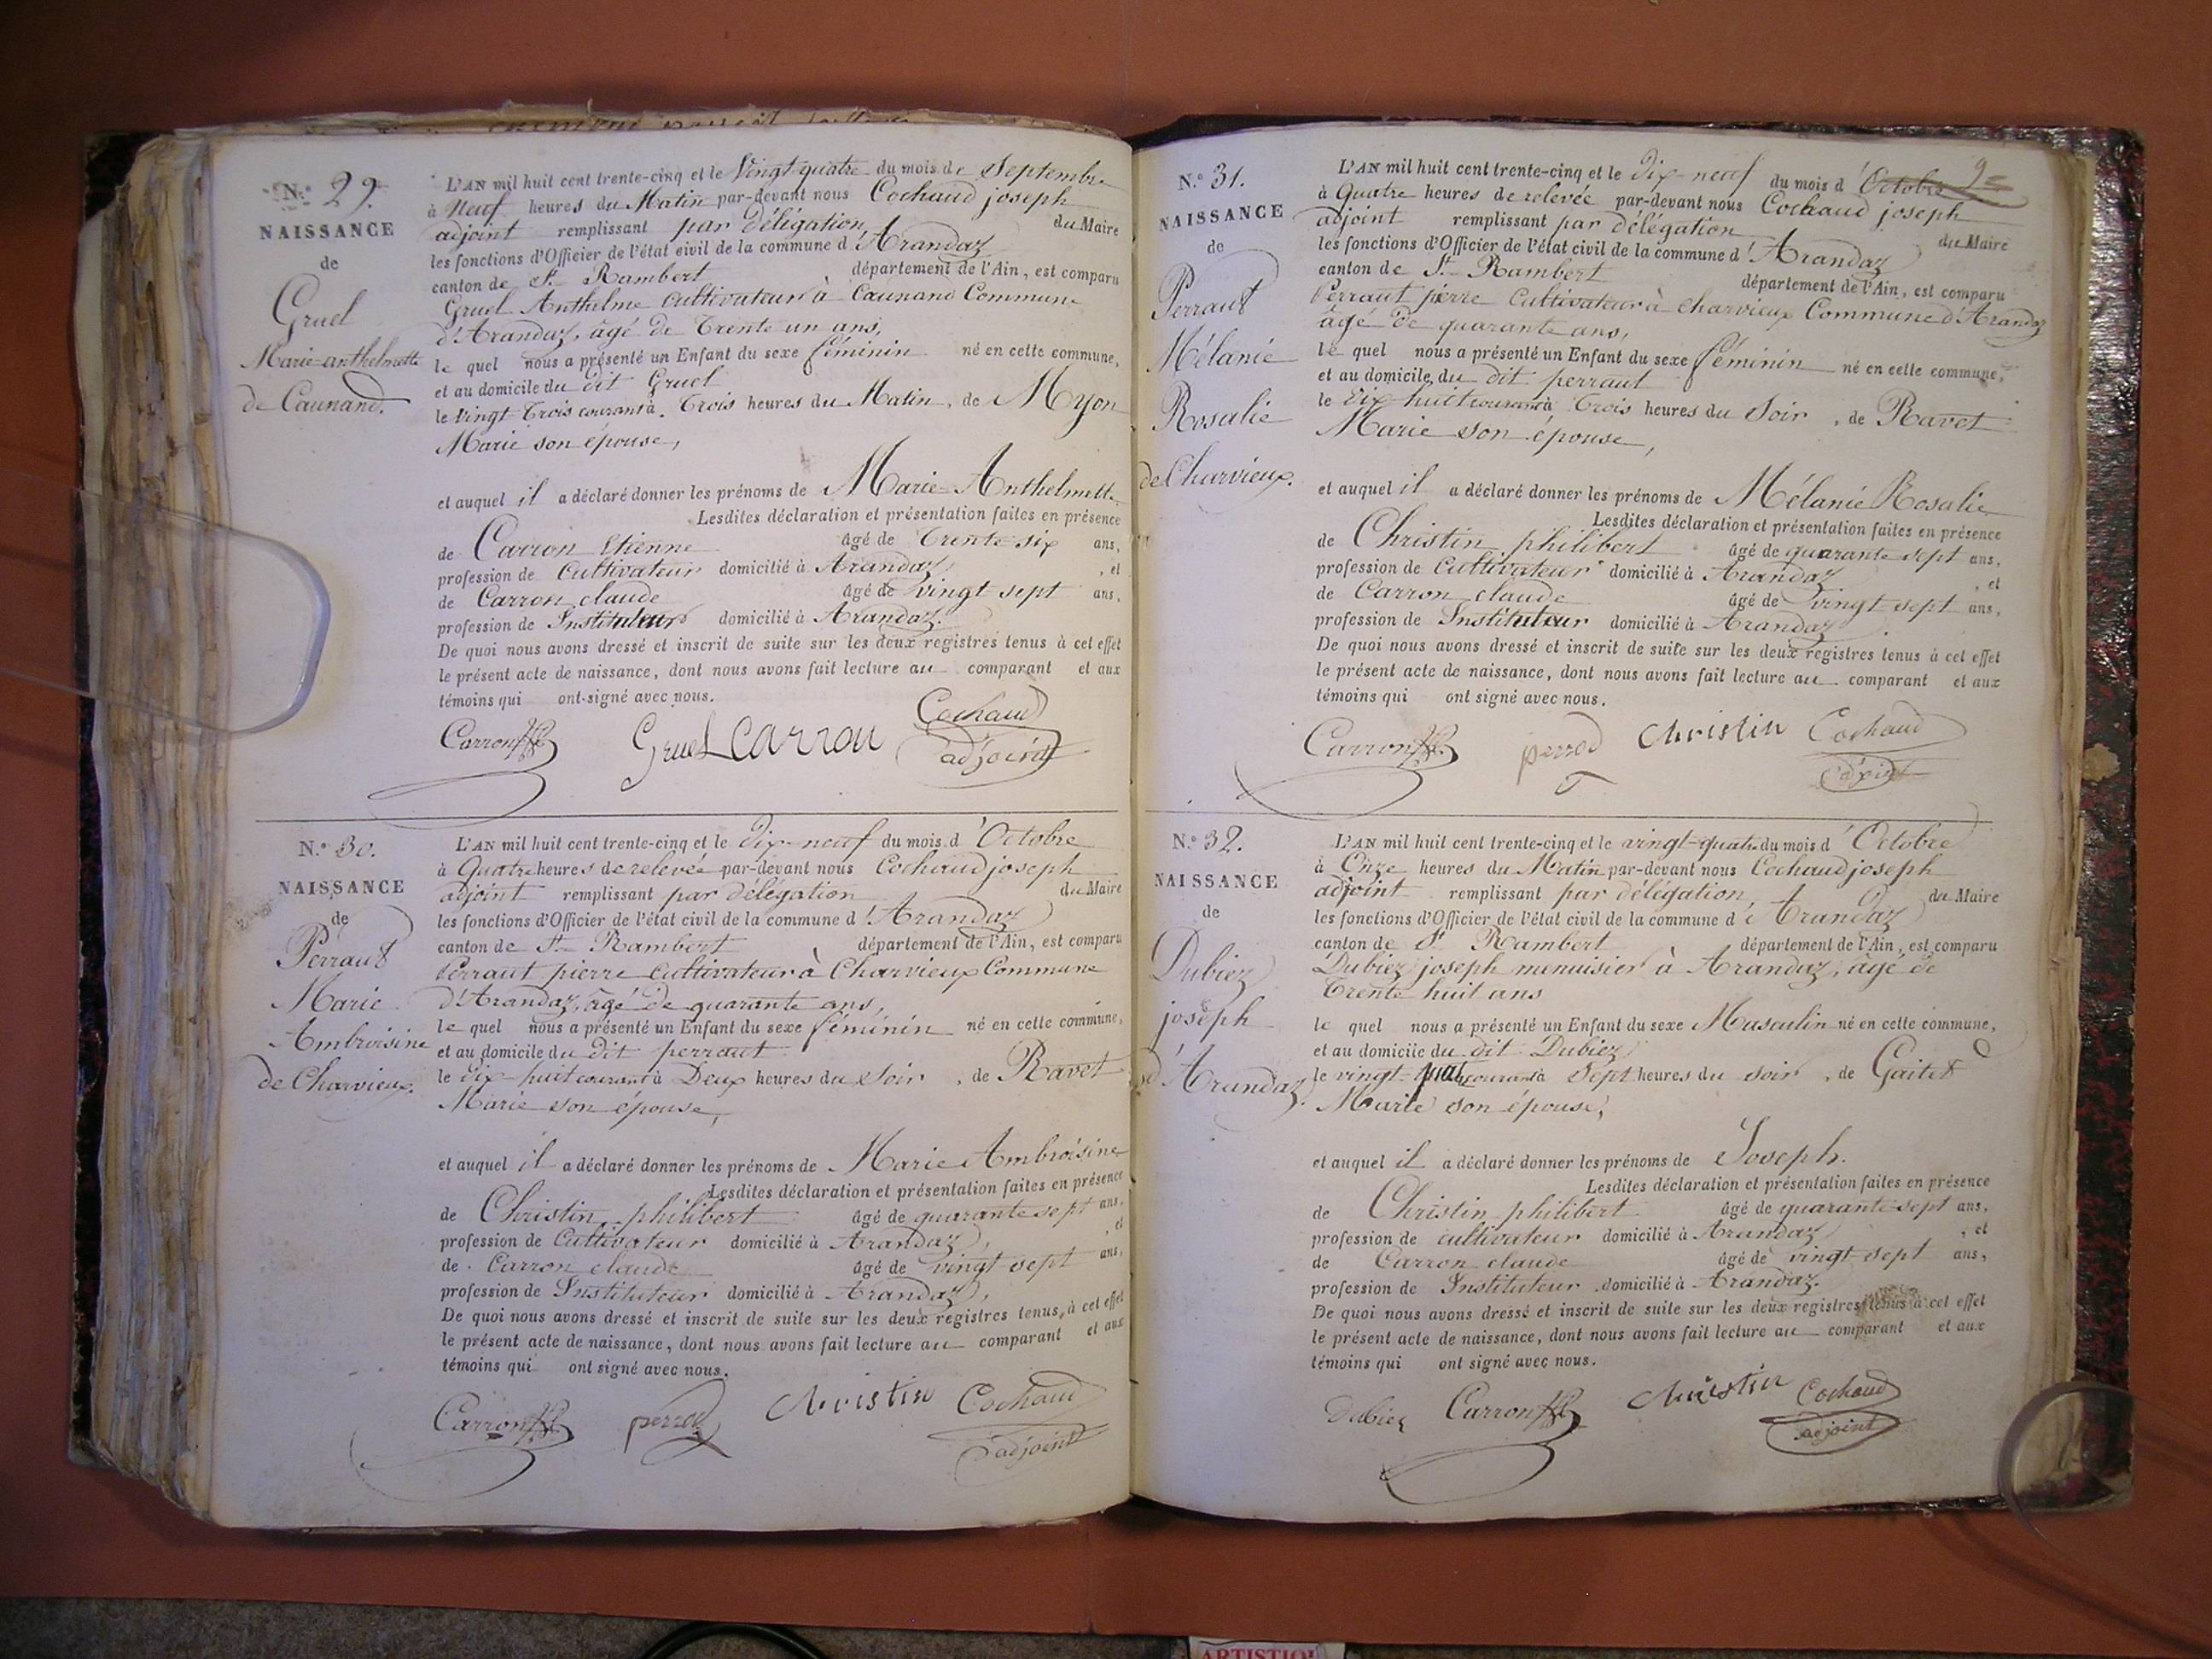 N.º 29.
NAISSANCE
de
Gruel
Marie-anthelmette
de Caunand.
L'AN mil huit cent trente-cinq et le Vingt-quatre du mois de Septembre
à Neuf heures du Matin par-devant nous Cochaud joseph
adjoint remplissant par délégation du Maire
les fonctions d'Officier de l'état civil de la commune d'Arandaz
canton de St. Rambert département de l'Ain, est comparu
Gruel Anthelme Cultivateur à Caunand Commune
d'Arandaz, âgé de Trente un ans,
le quel nous a présenté un Enfant du sexe féminin né en cette commune,
et au domicile du dit Gruel
le Vingt Trois courant à Trois heures du Matin, de Myon
Marie son épouse,
et auquel il a déclaré donner les prénoms de Marie-Anthelmette
Lesdites déclaration et présentation faites en présence
de Carron Etienne âgé de Trente six ans,
profession de Cultivateur domicilié à Arandaz, et
de Carron claude âgé de vingt sept ans,
profession de Instituteur domicilié à Arandaz.
De quoi nous avons dressé et inscrit de suite sur les deux registres tenus à cet effet
le présent acte de naissance, dont nous avons fait lecture au comparant et aux
témoins qui ont signé avec nous.
Carron Gruel Carrou Cochaud
adjoint
N.º 30.
NAISSANCE
de
Perraut
Marie
Ambroisine
de Charvieux.
L'AN mil huit cent trente-cinq et le Dix-neuf du mois d'Octobre
à Quatre heures de relevée par-devant nous Cochaud joseph
adjoint remplissant par délégation du Maire
les fonctions d'Officier de l'état civil de la commune d'Arandaz
canton de St. Rambert département de l'Ain, est comparu
Perraut pierre Cultivateur à Charvieux Commune
d'Arandaz, âgé de quarante ans,
le quel nous a présenté un Enfant du sexe féminin né en cette commune,
et au domicile du dit perraut
le dix-huit courant à Deux heures du Soir, de Ravet
Marie son épouse,
et auquel il a déclaré donner les prénoms de Marie Ambroisine
Lesdites déclaration et présentation faites en présence
de Christin philibert âgé de quarante sept ans,
profession de Cultivateur domicilié à Arandaz, et
de Carron claude âgé de vingt sept ans,
profession de Instituteur domicilié à Arandaz,
De quoi nous avons dressé et inscrit de suite sur les deux registres tenus à cet effet
le présent acte de naissance, dont nous avons fait lecture au comparant et aux
témoins qui ont signé avec nous.
Carron perrod Christin Cochaud
adjoint
N.º 31.
NAISSANCE
de
Perraut
Mélanie
Rosalie
de Charvieux.
L'AN mil huit cent trente-cinq et le Dix-neuf du mois d'Octobre
à Quatre heures de relevée par-devant nous Cochaud joseph
adjoint remplissant par délégation du Maire
les fonctions d'Officier de l'état civil de la commune d'Arandaz
canton de St. Rambert département de l'Ain, est comparu
Perraut pierre Cultivateur à Charvieux Commune d'Arandaz
âgé de quarante ans,
le quel nous a présenté un Enfant du sexe féminin né en cette commune,
et au domicile du dit perraut
le Dix-huit courant à Trois heures du Soir, de Ravet
Marie son épouse,
et auquel il a déclaré donner les prénoms de Mélanie Rosalie
Lesdites déclaration et présentation faites en présence
de Christin philibert âgé de quarante sept ans,
profession de Cultivateur domicilié à Arandaz, et
de Carron claude âgé de vingt sept ans,
profession de Instituteur domicilié à Arandaz.
De quoi nous avons dressé et inscrit de suite sur les deux registres tenus à cet effet
le présent acte de naissance, dont nous avons fait lecture au comparant et aux
témoins qui ont signé avec nous.
Carron perrod Christin Cochaud
adjoint
N.º 32.
NAISSANCE
de
Dubiez
joseph
d'Arandaz.
L'AN mil huit cent trente-cinq et le vingt-quatre du mois d'Octobre
à Onze heures du Matin par-devant nous Cochaud joseph
adjoint remplissant par délégation, du Maire
les fonctions d'Officier de l'état civil de la commune d'Arandaz
canton de St. Rambert département de l'Ain, est comparu
Dubiez joseph menuisier à Arandaz, âgé de
Trente huit ans
le quel nous a présenté un Enfant du sexe Masculin né en cette commune,
et au domicile du dit Dubiez
le vingt- courant à Sept heures du soir, de Gaitet
Marie son épouse,
et auquel il a déclaré donner les prénoms de Joseph.
Lesdites déclaration et présentation faites en présence
de Christin philibert âgé de quarante sept ans,
profession de cultivateur domicilié à Arandaz, et
de Carron claude âgé de vingt-sept ans,
profession de Instituteur domicilié à Arandaz.
De quoi nous avons dressé et inscrit de suite sur les deux registres tenus à cet effet
le présent acte de naissance, dont nous avons fait lecture au comparant et aux
témoins qui ont signé avec nous.
Dubiez Carron Christin Cochaud
adjoint